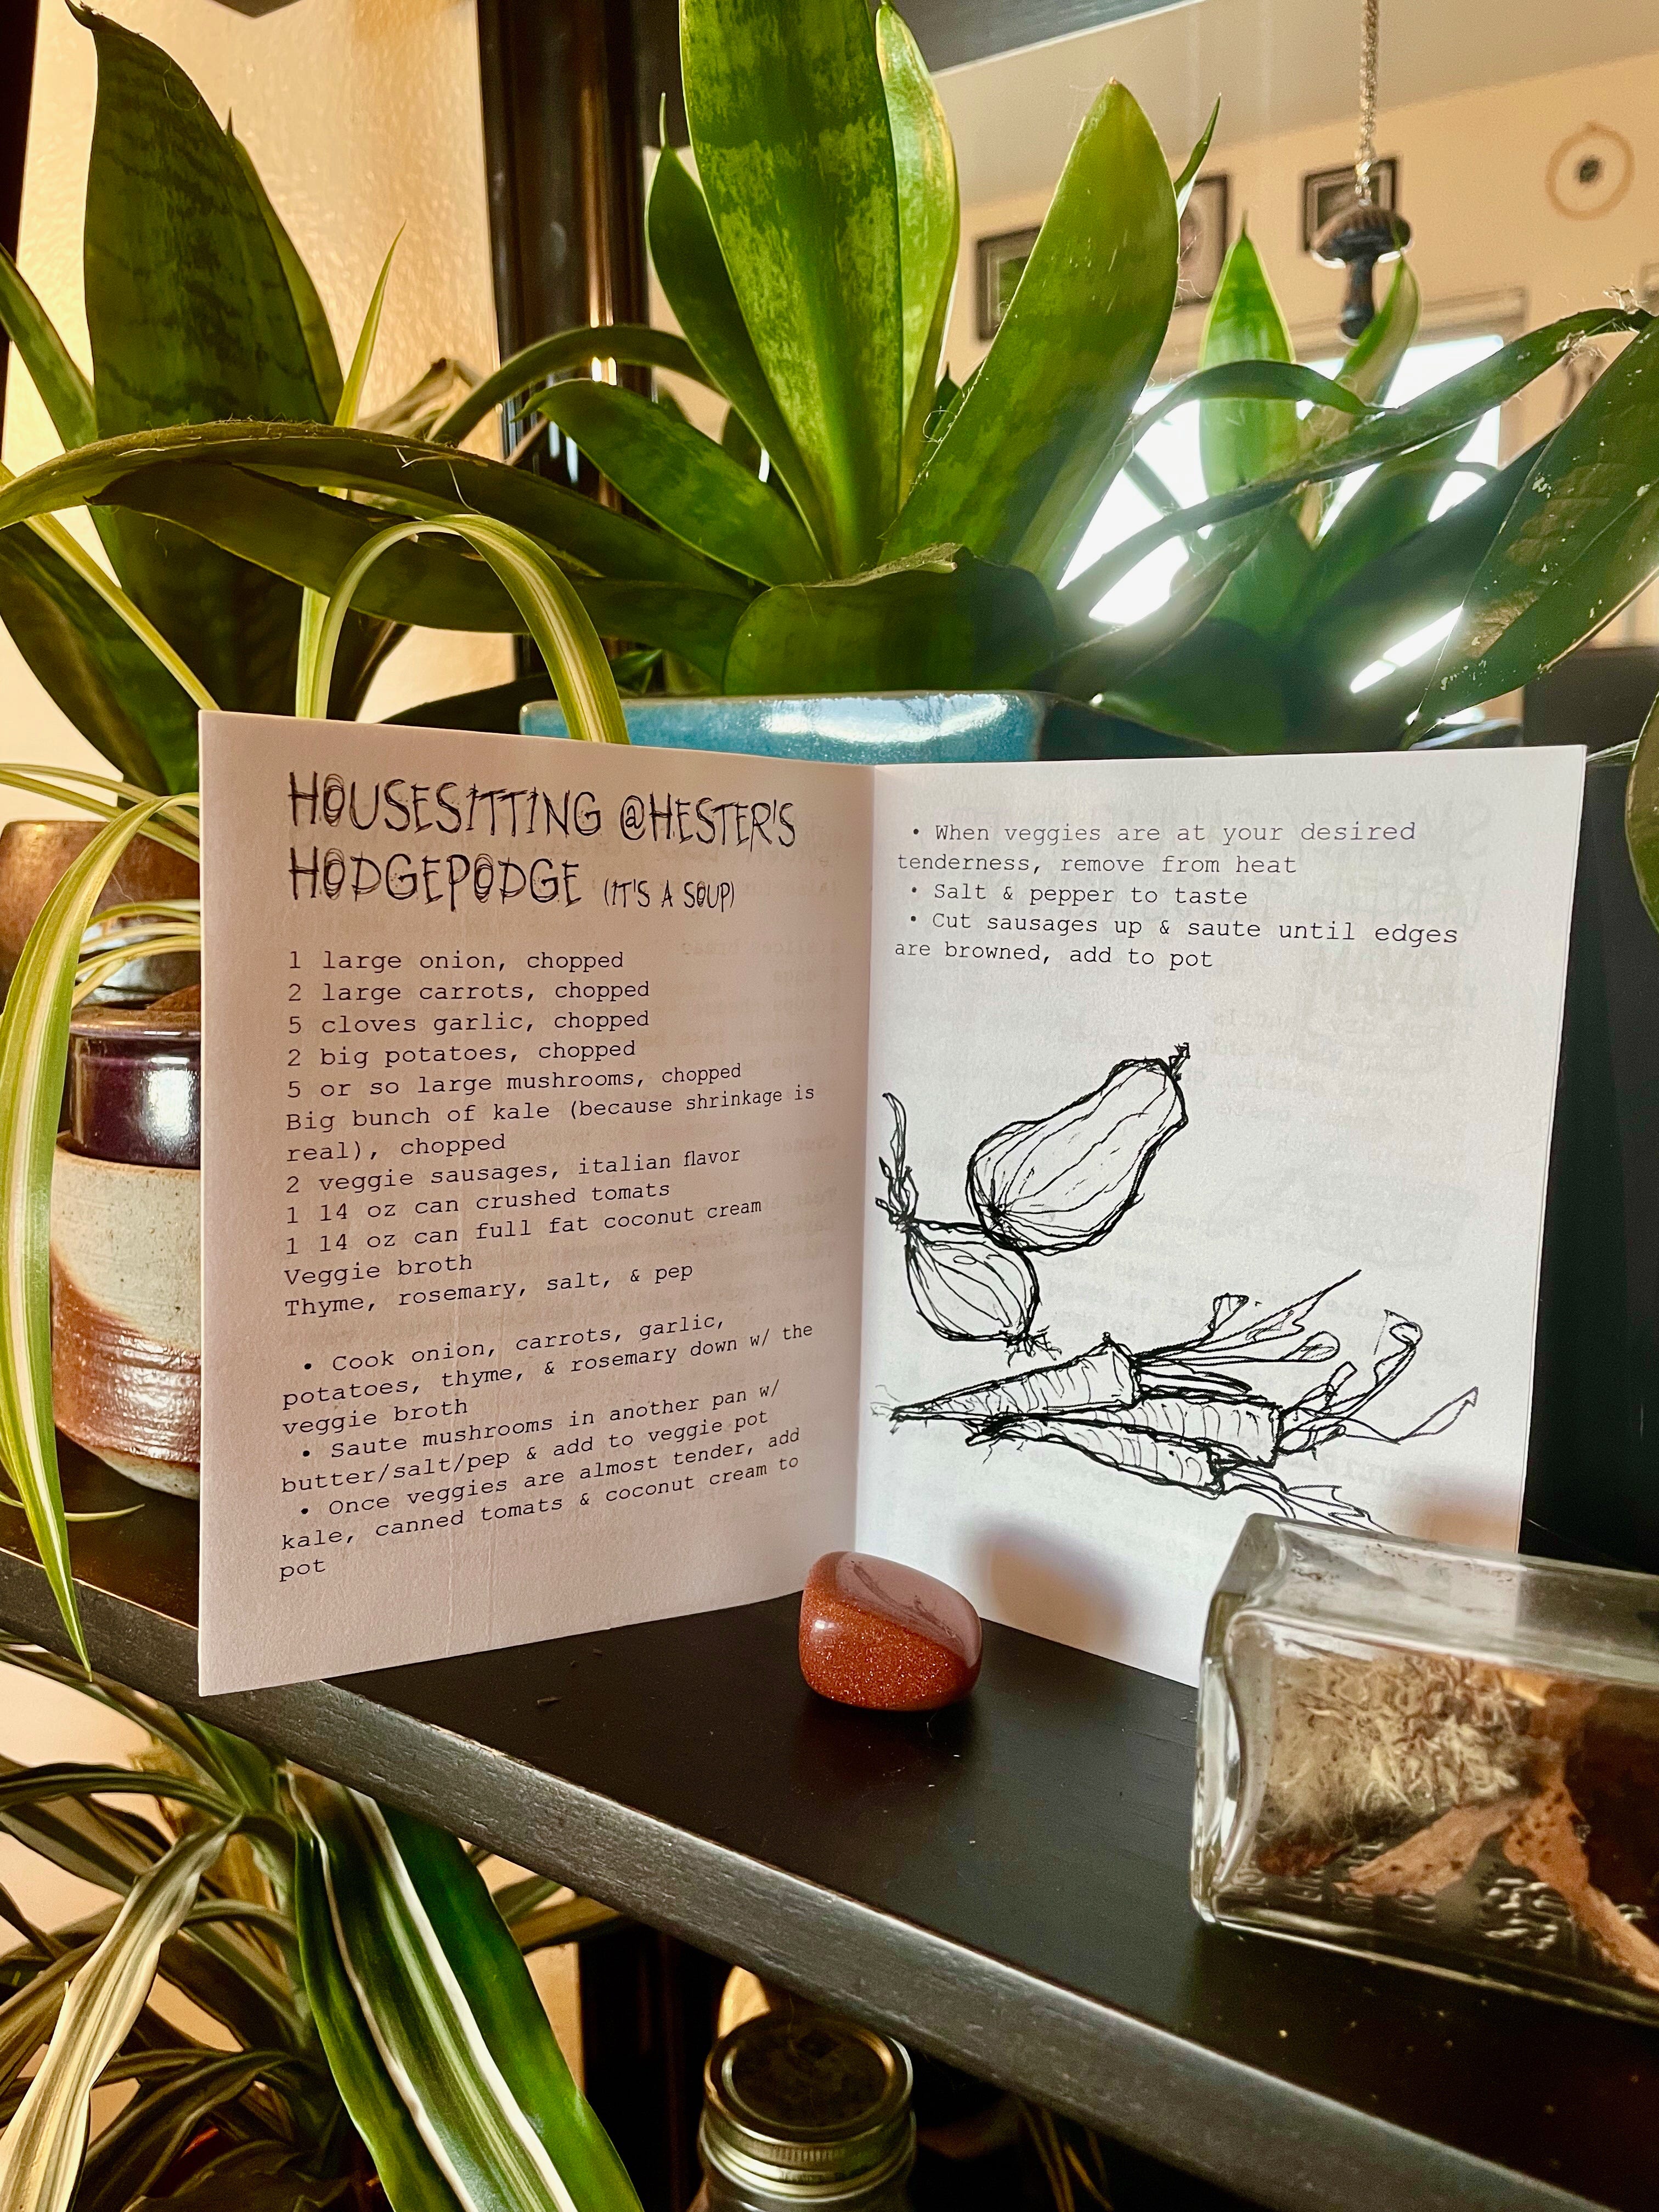 HOUSESITTING @HESTER'S
HODGEPODGE (IT'S A SOUP)
1 large onion, chopped
2 large carrots, chopped
5 cloves garlic, chopped
2 big potatoes, chopped
5 or so large mushrooms, chopped
Big bunch of kale (because shrinkage is
real), chopped
2 veggie sausages, italian flavor
1 14 oz can crushed tomats
1 14 oz can full fat coconut cream
Veggie broth
Thyme, rosemary, salt, & pep
• Cook onion, carrots, garlic,
potatoes, thyme, & rosemary down w/ the
veggie broth
• Saute mushrooms in another pan w/
butter/salt/pep & add to veggie pot
• Once veggies are almost tender, add
kale, canned tomats & coconut cream to
pot
• When veggies are at your desired
tenderness, remove from heat
• Salt & pepper to taste
• Cut sausages up & saute until edges
are browned, add to pot